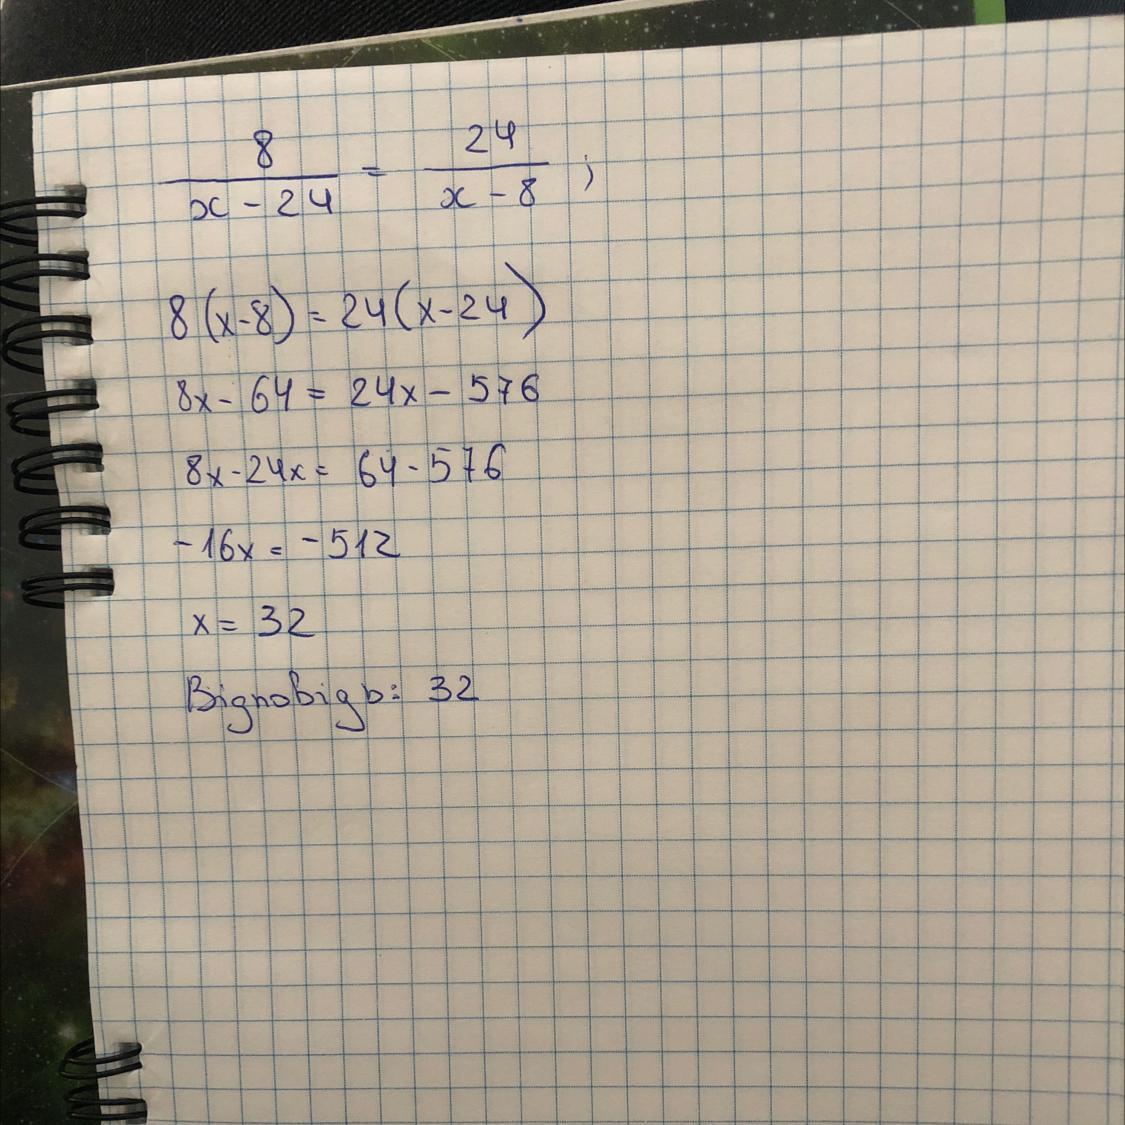 8/(x - 24) = 24/(x - 8) ;
8(x-8) = 24(x-24)
8x - 64 = 24x - 576
8x-24x = 64-576
-16x = -512
x = 32
Відповідь: 32